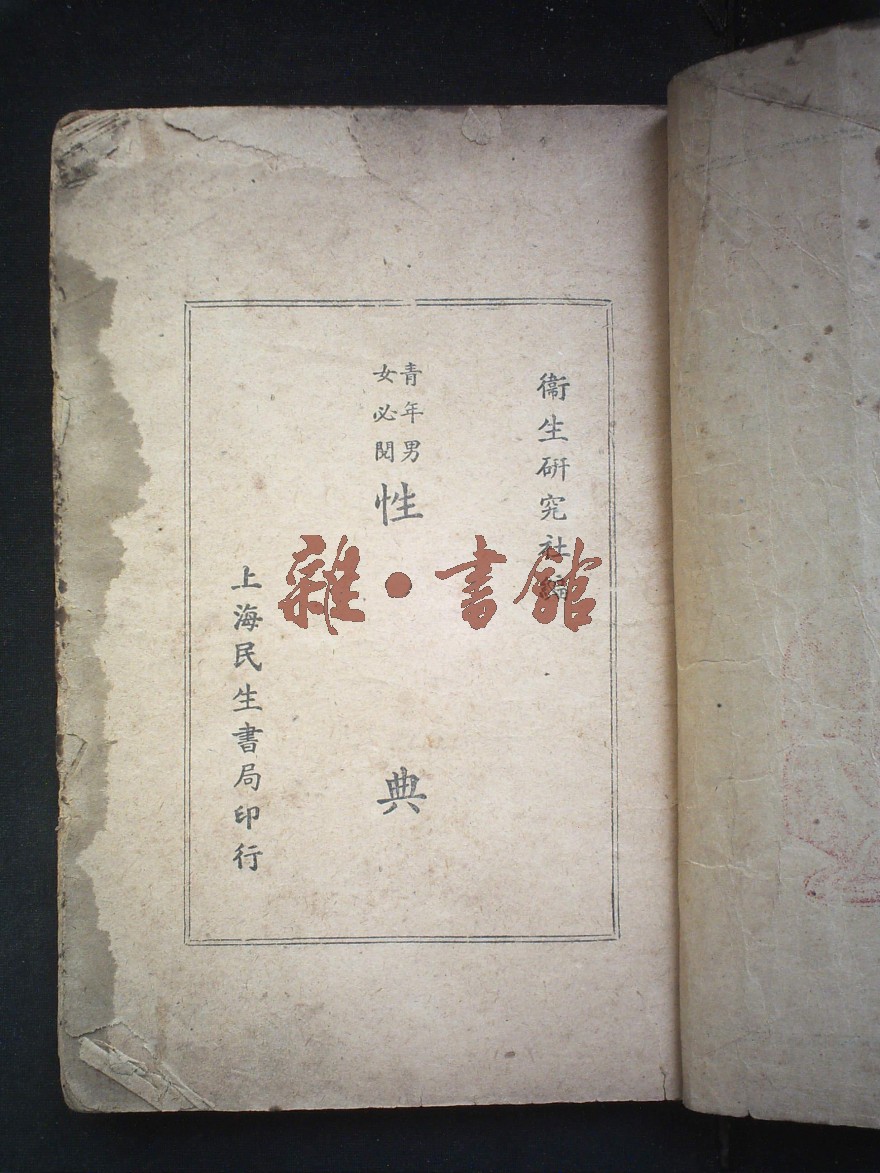 衞生研究社編
青年男
女必閱
性典
上海民生書局印行
雜·書館